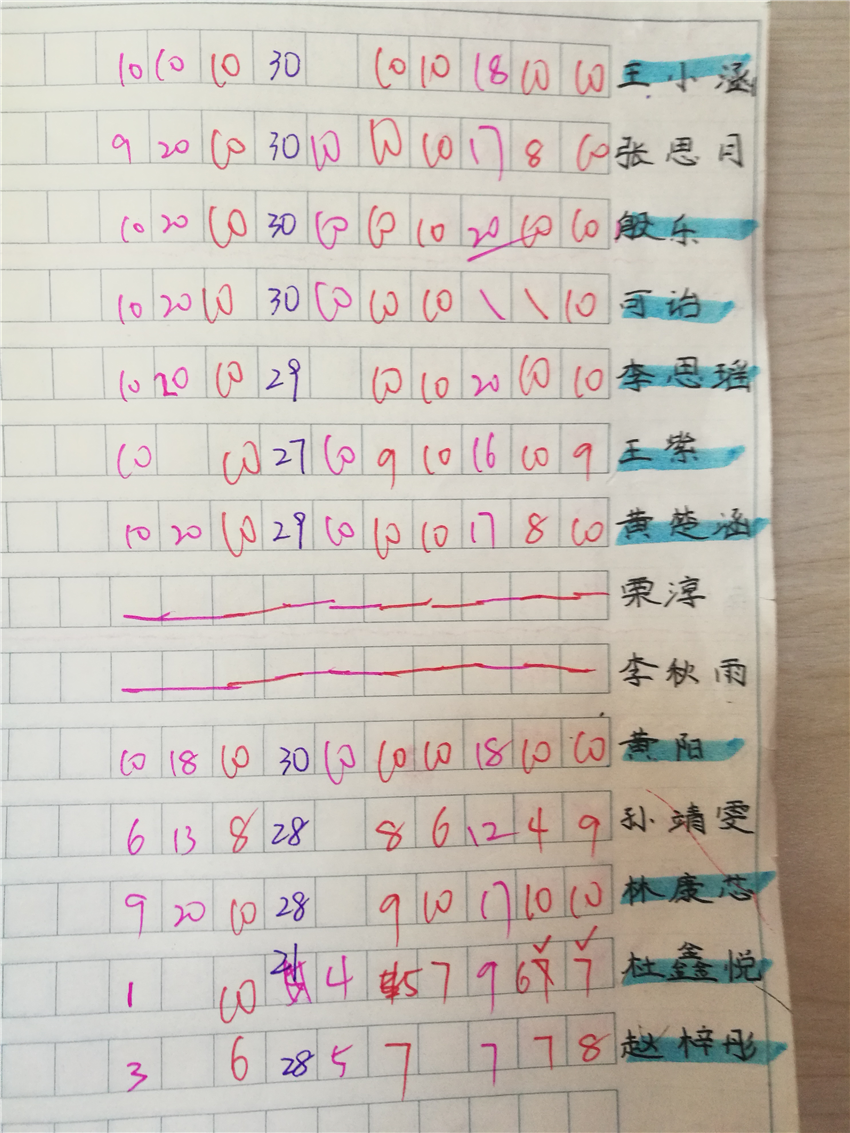 10 10 10 30 10 10 18 10 10 王小涵
9 20 10 30 10 10 10 17 8 10 张思月
10 20 10 30 10 10 10 20 10 10 殷乐
10 20 10 30 10 10 10 \ \ 10 可诒
10 20 10 29 10 10 20 10 10 李思瑶
10 10 27 10 9 10 16 10 9 王紫
10 20 10 29 10 10 10 17 8 10 黄楚涵
栗淳
李秋雨
10 18 10 30 10 10 10 18 10 10 黄阳
6 13 8 28 8 6 12 4 9 孙靖雯
9 20 10 28 9 10 17 10 10 林康芯
1 10 21 4 5 7 9 6 7 杜鑫悦
3 6 28 5 7 7 7 8 赵梓彤